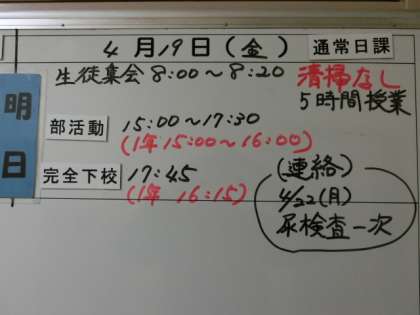 4月19日(金) 通常日課
明日
生徒集会 8:00〜8:20 清掃なし
5時間授業
部活動 15:00〜17:30
(1年15:00〜16:00)
完全下校 17:45
(1年 16:15)
(連絡)
4/22(月)
尿検査一次